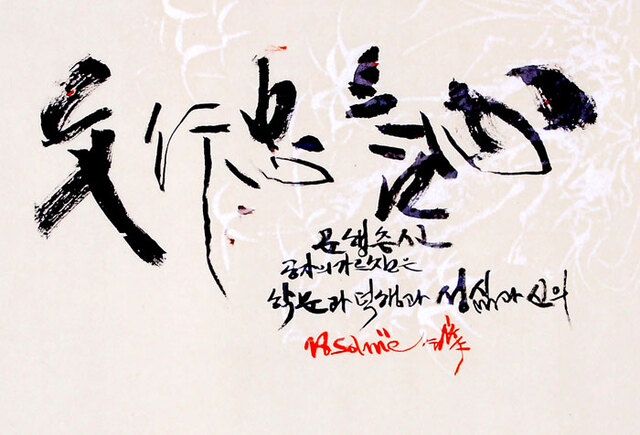 文行忠信
문행충신
공자의 가르침은
학문과 덕행과 성심과 신의
Solmie